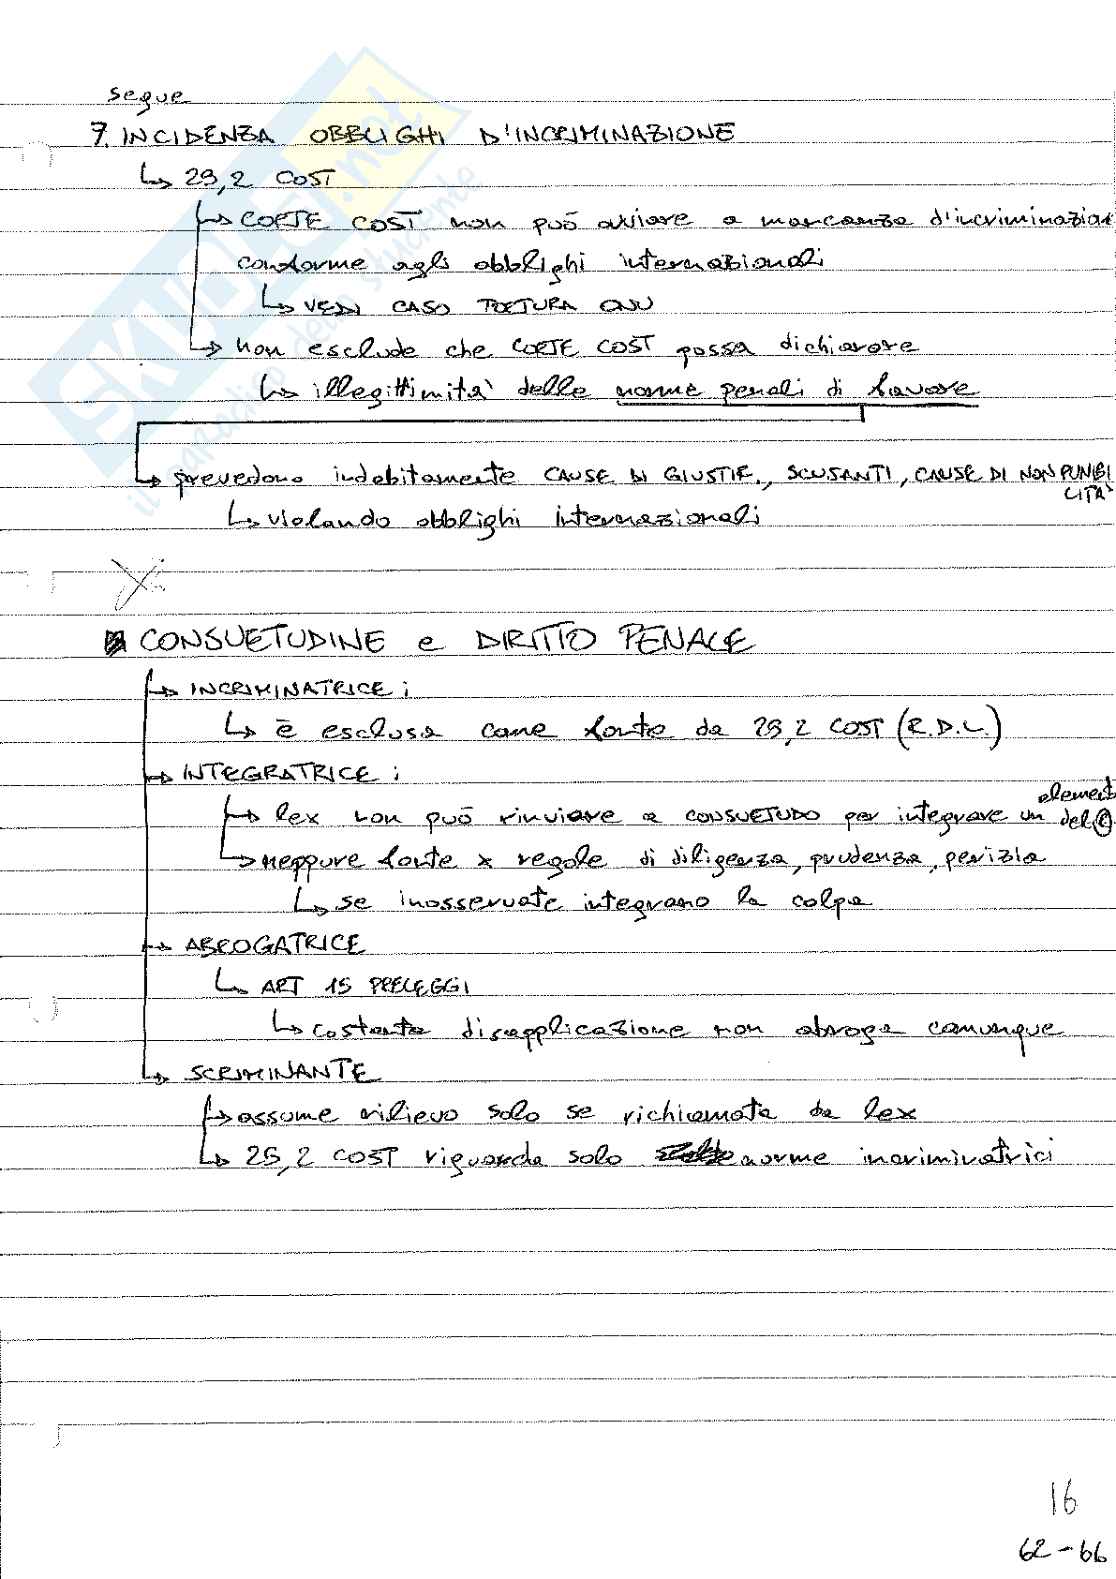 segue
7. INCIDENZA OBBLIGHI D'INCRIMINAZIONE
↳ 25,2 COST
↳ CORTE COST non può ovviare a mancanza d'incriminazion
conforme agli obblighi internazionali
↳ VEDI CASO TORTURA ONU
↳ non esclude che CORTE COST possa dichiarare
↳ illegittimità delle norme penali di favore
↳ prevedono indebitamente CAUSE DI GIUSTIF., SCUSANTI, CAUSE DI NON PUNIBI
LITÀ
↳ violando obblighi internazionali
CONSUETUDINE e DIRITTO PENALE
↳ INCRIMINATRICE :
↳ è esclusa come fonte da 25,2 COST (R.D.L.)
↳ INTEGRATRICE :
↳ lex non può rinviare a CONSUETUDO per integrare un element
del R.
↳ neppure fonte x regole di diligenza, prudenza, perizia
↳ se inosservate integrano la colpa
↳ ABROGATRICE
↳ ART 15 PRELEGGI
↳ costante disapplicazione non abroga comunque
↳ SCRIMINANTE
↳ assume rilievo solo se richiamata da lex
↳ 25,2 COST riguarda solo norme incriminatrici
16
62-66
SKUOLA.net
il paradiso dello studente